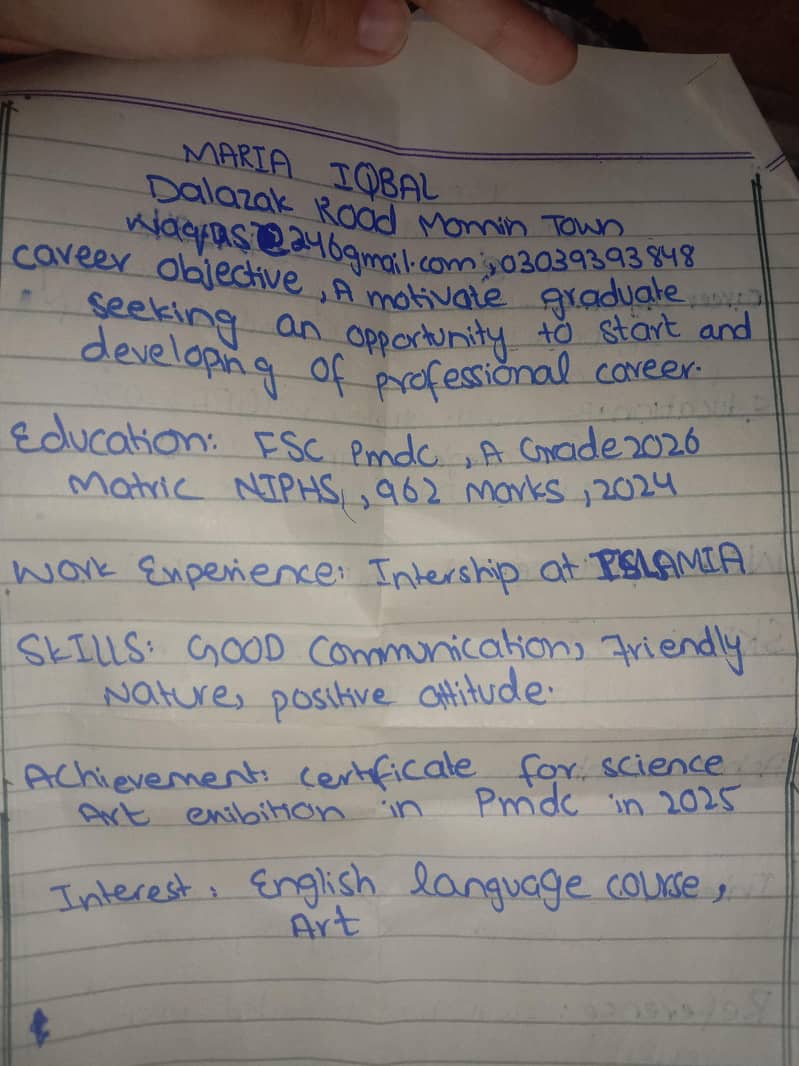 MARIA IQBAL
Dalazak Road Momin Town
246gmail.com, 03039393848
career objective, A motivate graduate
seeking an opportunity to start and
developing of professional career.
Education: FSC Pmdc, A Grade 2026
Matric NIPHS, 962 Marks, 2024
Work Experience: Intership at ISLAMIA
SKILLS: GOOD Communication, Friendly
Nature, positive attitude.
Achievement: certficate for science
Art exibition in Pmdc in 2025
Interest: English language course,
Art